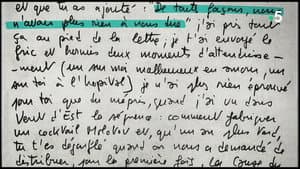 et que tu as ajouté : "De toute façons, nous
n'avons plus rien à nous dire" j'ai pris tout
ça au pied de la lettre, je t'ai envoyé le
fric et hormis deux moments d'attendrisse-
-ment (un sur moi malheureux en amour, un
sur toi à l'hopital) je n'ai plus rien éprouvé
pour toi que du mépris, quand j'ai vu dans
Vent d'Est la séquence : comment fabriquer
un cocktail Molotov et, qu'un an plus tard,
tu t'es dégonflé quand on nous a demandé de
distribuer, pour la première fois, la Cause du
5